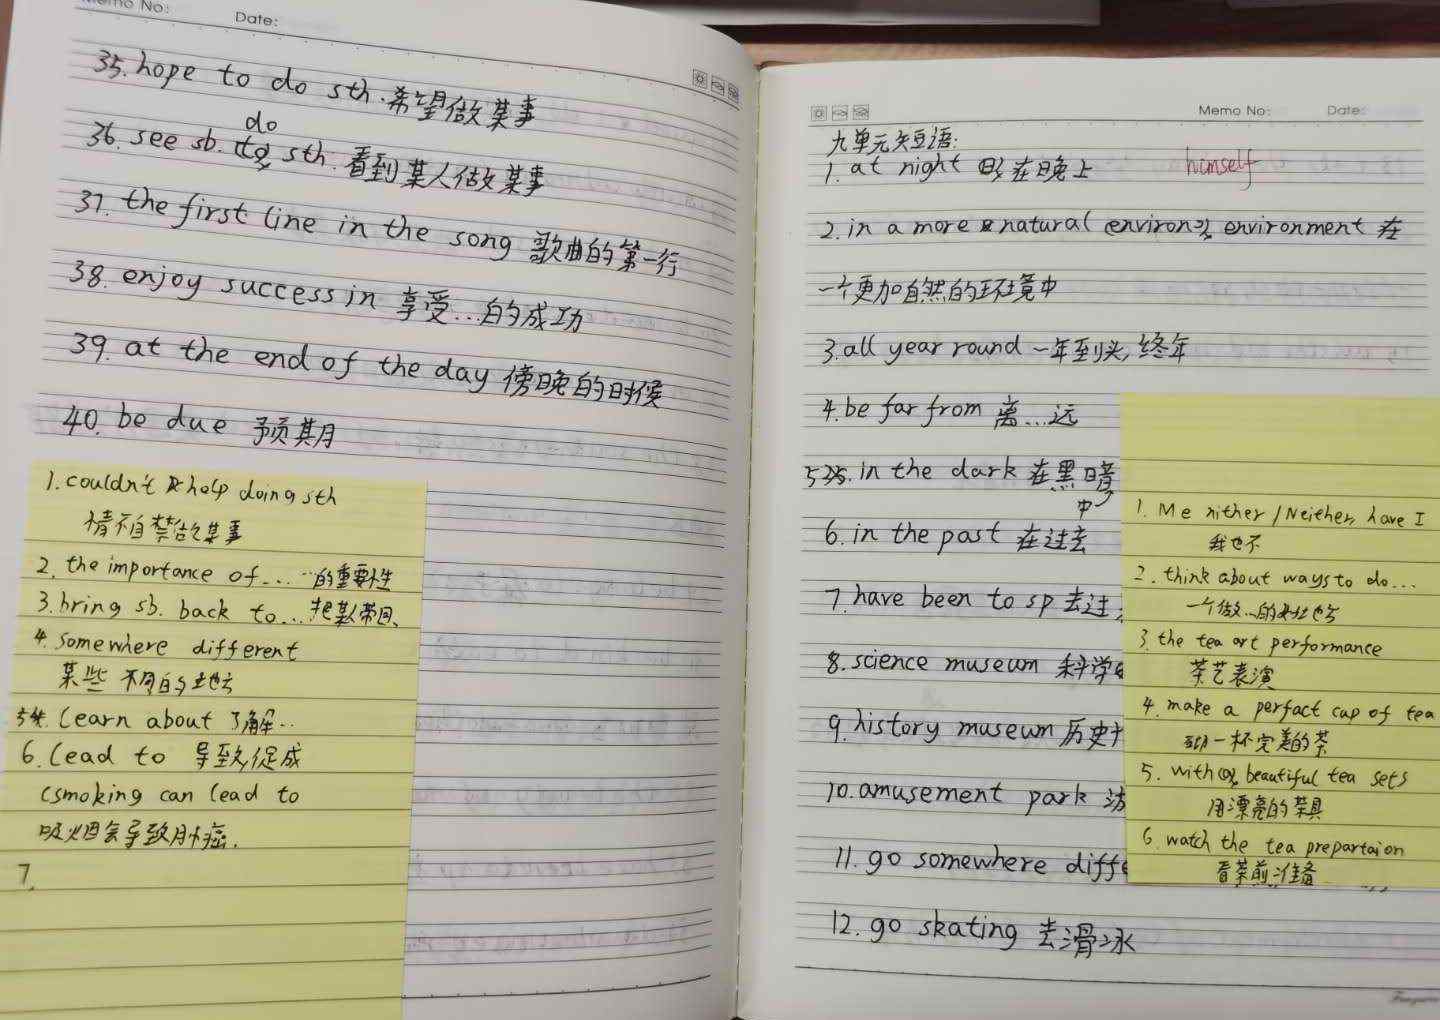 Memo No:
Date:
35. hope to do sth. 希望做某事
do
36. see sb. sth. 看到某人做某事
37. the first line in the song 歌曲的第一行
38. enjoy success in 享受...的成功
39. at the end of the day 傍晚的时候
40. be due 预期
1. couldn't help doing sth
情不自禁做某事
2. the importance of ... ...的重要性
3. bring sb. back to...把某人带回
4. somewhere different
某些不同的地方
5. learn about 了解..
6. lead to 导致,促成
(smoking can lead to
吸烟会导致肺癌.
7.
Memo No:
Date:
九单元短语:
1. at night 在晚上
himself
2. in a more natural environment 在
一个更加自然的环境中
3. all year round 一年到头,终年
4. be far from 离...远
5. in the dark 在黑暗
中
6. in the past 在过去
7. have been to sp 去过
8. science museum 科学
9. history museum 历史
10. amusement park 游
11. go somewhere diffe
12. go skating 去滑冰
1. Me nither / Neither have I
我也不
2. think about ways to do...
一个做...的地方
3. the tea art performance
茶艺表演
4. make a perfact cup of tea
一杯完美的茶
5. with beautiful tea sets
用漂亮的茶具
6. watch the tea prepartaion
看茶前准备